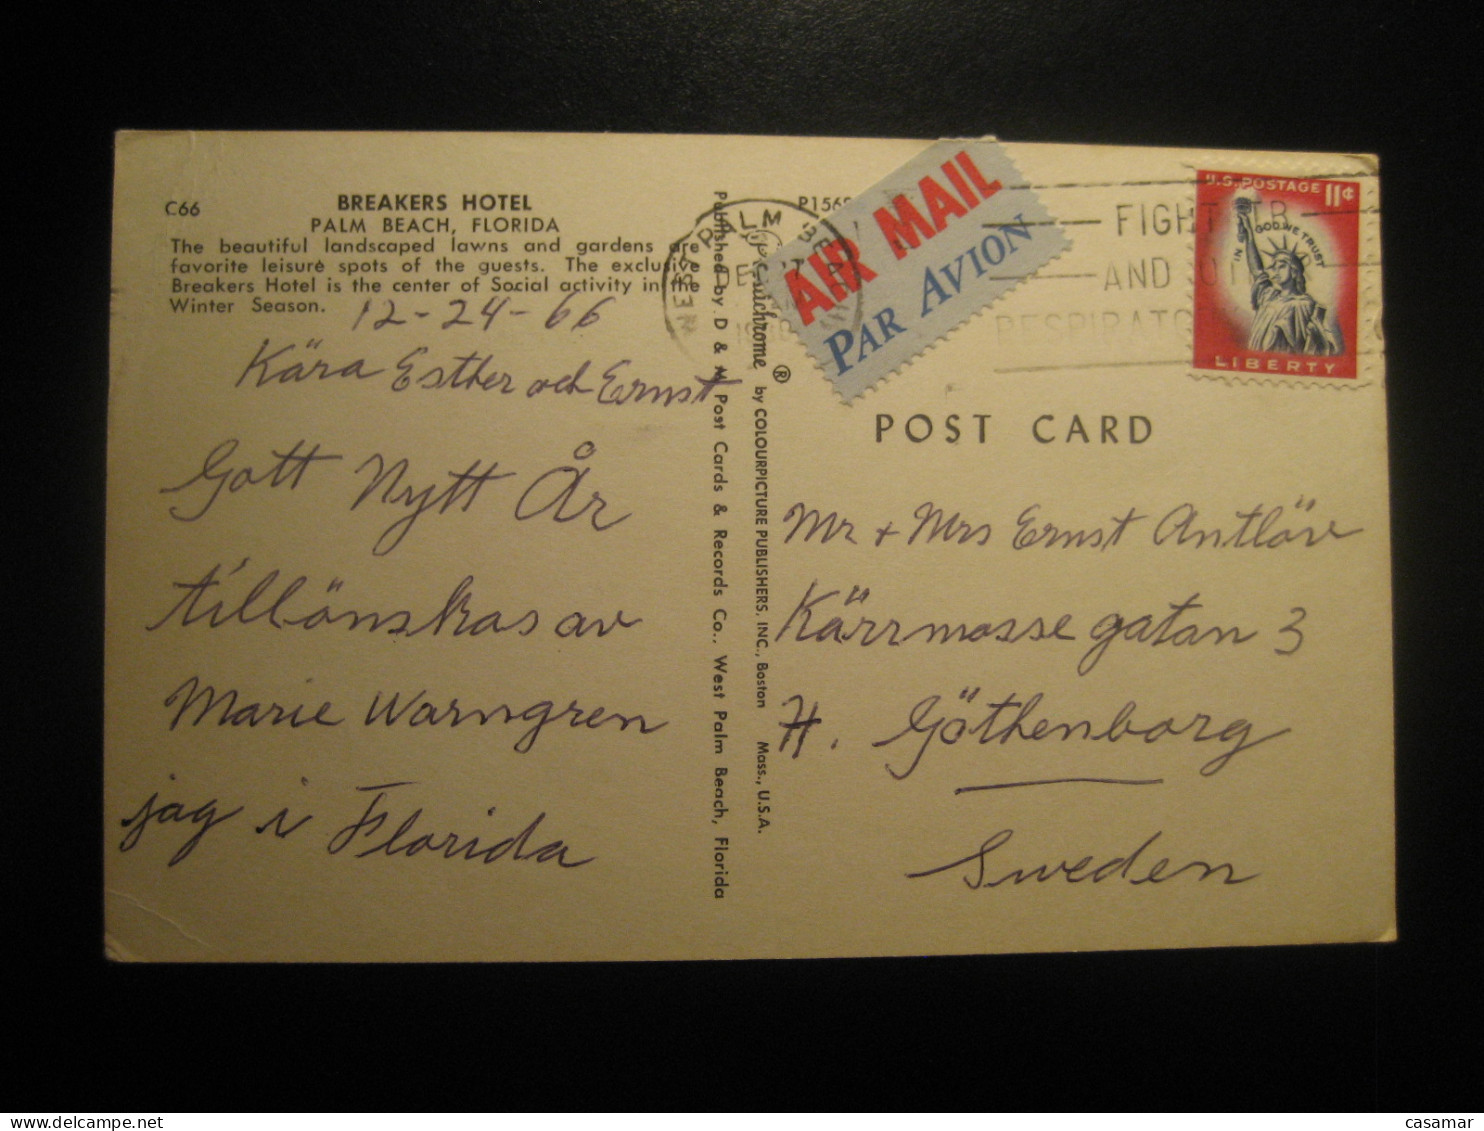 C66
BREAKERS HOTEL
PALM BEACH, FLORIDA
The beautiful landscaped lawns and gardens are
favorite leisure spots of the guests. The exclusive
Breakers Hotel is the center of Social activity in the
Winter Season.
12-24-66
Kära Esther och Ernst
Gott Nytt År
tillönskas av
Marie Warngren
jag i Florida
Published by D & M Post Cards & Records Co., West Palm Beach, Florida
by COLOURPICTURE PUBLISHERS, INC., Boston Mass., U.S.A.
P1569
WEST PALM BEA
AIR MAIL
PAR AVION
FIGHT TB
AND OTHER
RESPIRATO
U.S. POSTAGE 11¢
IN GOD WE TRUST
LIBERTY
POST CARD
Mr + Mrs Ernst Antlöv
Kärrmosse gatan 3
H. Göthenborg
Sweden
casamar